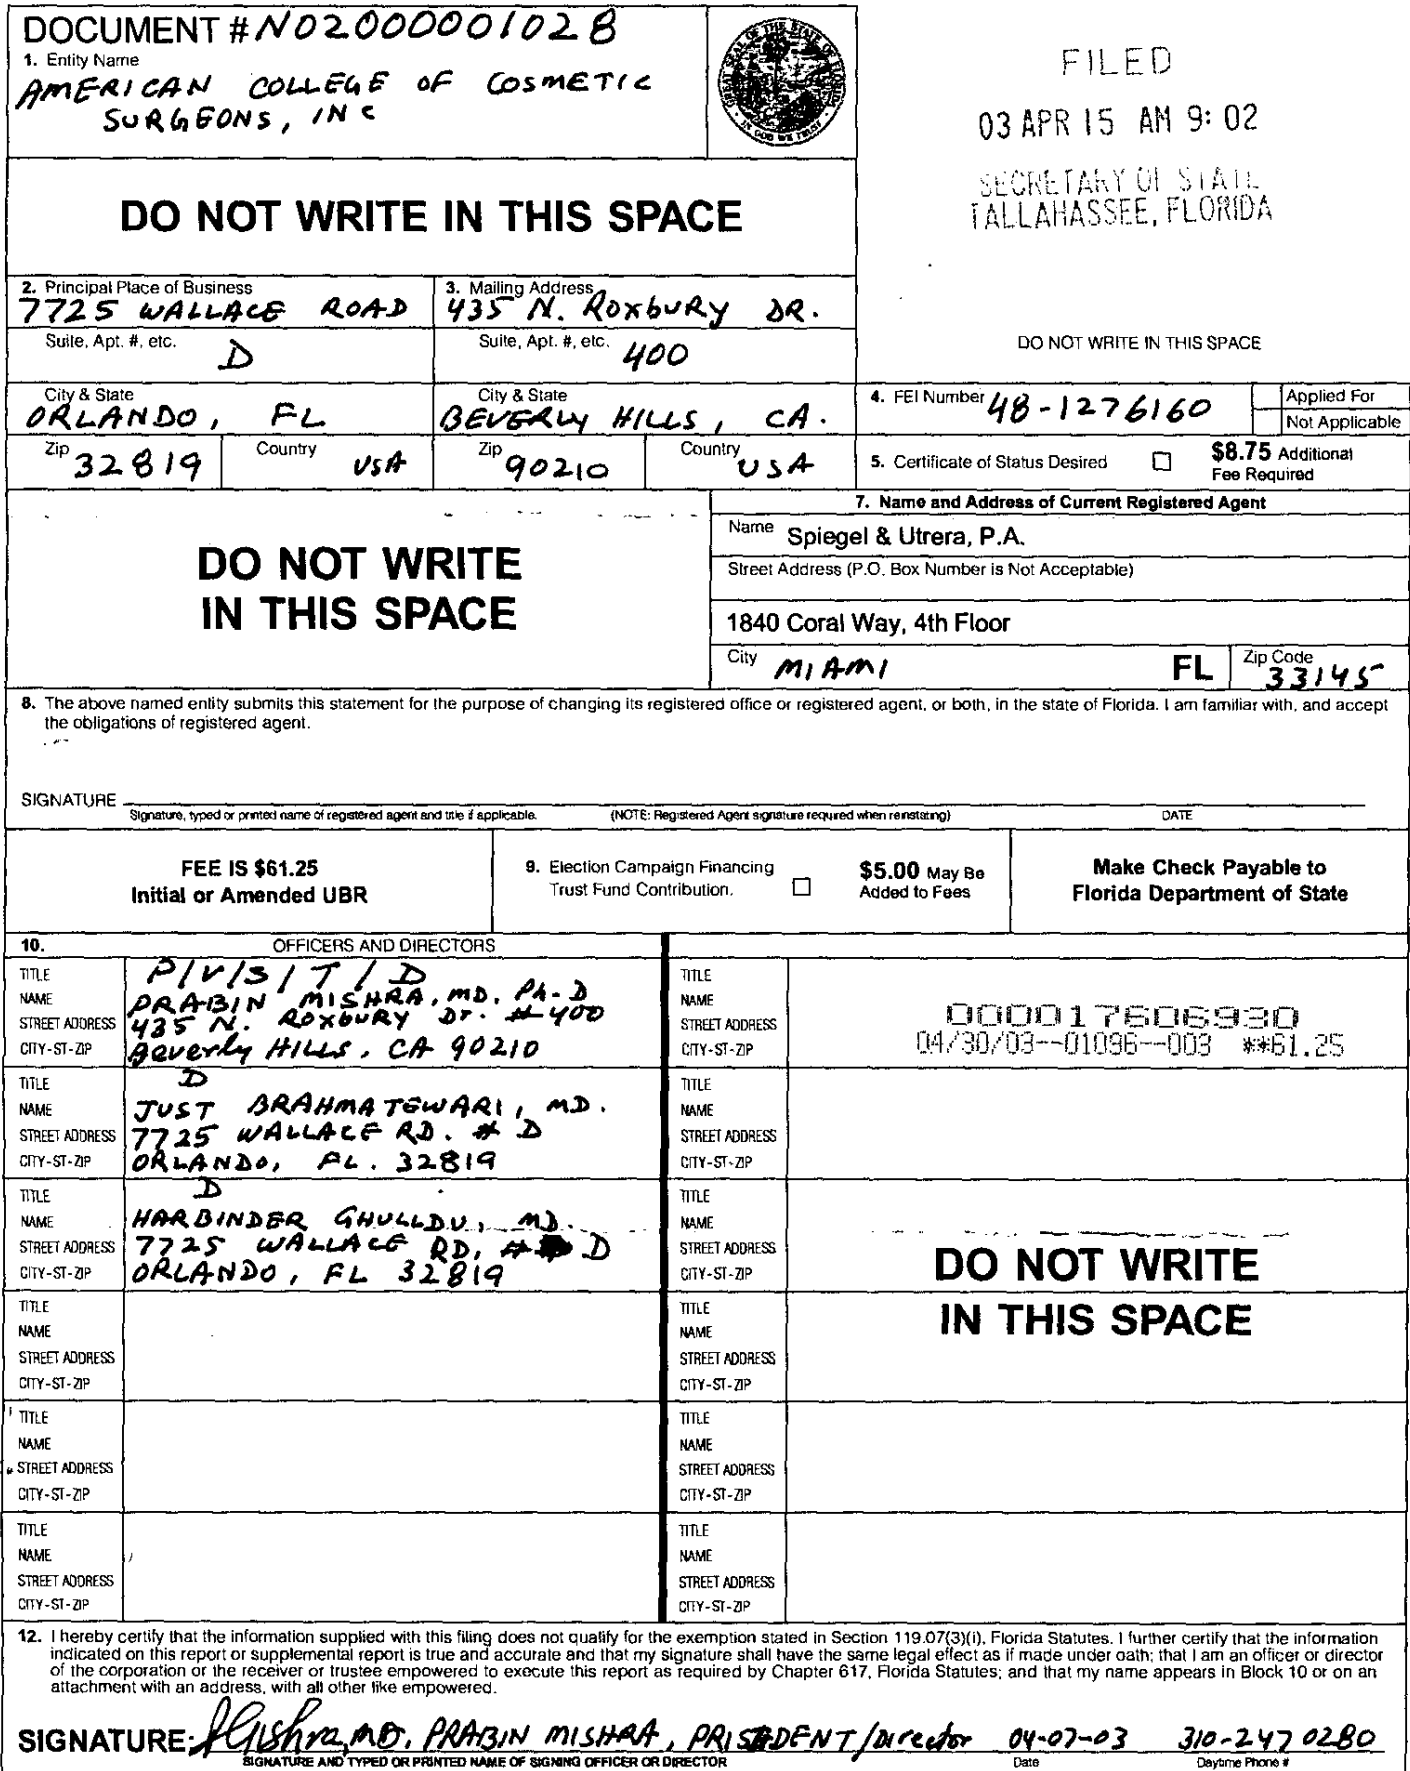 DOCUMENT # N02000001028
1. Entity Name
AMERICAN COLLEGE OF COSMETIC
SURGEONS, INC
GREAT SEAL OF THE STATE OF FLORIDA
IN GOD WE TRUST
FILED
03 APR 15 AM 9:02
SECRETARY OF STATE
TALLAHASSEE, FLORIDA
DO NOT WRITE IN THIS SPACE
2. Principal Place of Business
7725 WALLACE ROAD
3. Mailing Address
435 N. ROXBURY DR.
Suite, Apt. #, etc.
D
Suite, Apt. #, etc.
400
DO NOT WRITE IN THIS SPACE
City & State
ORLANDO, FL
City & State
BEVERLY HILLS, CA.
4. FEI Number 48-1276160
Applied For
Not Applicable
Zip 32819
Country USA
Zip 90210
Country USA
5. Certificate of Status Desired
$8.75 Additional
Fee Required
DO NOT WRITE
IN THIS SPACE
7. Name and Address of Current Registered Agent
Name Spiegel & Utrera, P.A.
Street Address (P.O. Box Number is Not Acceptable)
1840 Coral Way, 4th Floor
City MIAMI FL
Zip Code 33145
8. The above named entity submits this statement for the purpose of changing its registered office or registered agent, or both, in the state of Florida. I am familiar with, and accept
the obligations of registered agent.
SIGNATURE
Signature, typed or printed name of registered agent and title if applicable. (NOTE: Registered Agent signature required when reinstating) DATE
FEE IS $61.25
Initial or Amended UBR
9. Election Campaign Financing
Trust Fund Contribution.
$5.00 May Be
Added to Fees
Make Check Payable to
Florida Department of State
10. OFFICERS AND DIRECTORS
TITLE P/V/S/T/D
NAME PRABIN MISHRA, MD. Ph-D
STREET ADDRESS 435 N. ROXBURY Dr. #400
CITY-ST-ZIP Beverly HILLS, CA 90210
TITLE
NAME
STREET ADDRESS
CITY-ST-ZIP
000017606930
04/30/03--01096--003 **61.25
TITLE D
NAME JUST BRAHMATEWARI, MD.
STREET ADDRESS 7725 WALLACE RD. # D
CITY-ST-ZIP ORLANDO, FL. 32819
TITLE
NAME
STREET ADDRESS
CITY-ST-ZIP
TITLE D
NAME HARBINDER GHULLDU, MD.
STREET ADDRESS 7725 WALLACE RD, # D
CITY-ST-ZIP ORLANDO, FL 32819
TITLE
NAME
STREET ADDRESS
CITY-ST-ZIP
DO NOT WRITE
IN THIS SPACE
TITLE
NAME
STREET ADDRESS
CITY-ST-ZIP
TITLE
NAME
STREET ADDRESS
CITY-ST-ZIP
TITLE
NAME
STREET ADDRESS
CITY-ST-ZIP
TITLE
NAME
STREET ADDRESS
CITY-ST-ZIP
TITLE
NAME
STREET ADDRESS
CITY-ST-ZIP
TITLE
NAME
STREET ADDRESS
CITY-ST-ZIP
12. I hereby certify that the information supplied with this filing does not qualify for the exemption stated in Section 119.07(3)(i), Florida Statutes. I further certify that the information
indicated on this report or supplemental report is true and accurate and that my signature shall have the same legal effect as if made under oath; that I am an officer or director
of the corporation or the receiver or trustee empowered to execute this report as required by Chapter 617, Florida Statutes; and that my name appears in Block 10 or on an
attachment with an address, with all other like empowered.
SIGNATURE: Mishra, MD. PRABIN MISHRA, PRISEDENT/Director 04-07-03 310-247 0280
SIGNATURE AND TYPED OR PRINTED NAME OF SIGNING OFFICER OR DIRECTOR Date Daytime Phone #